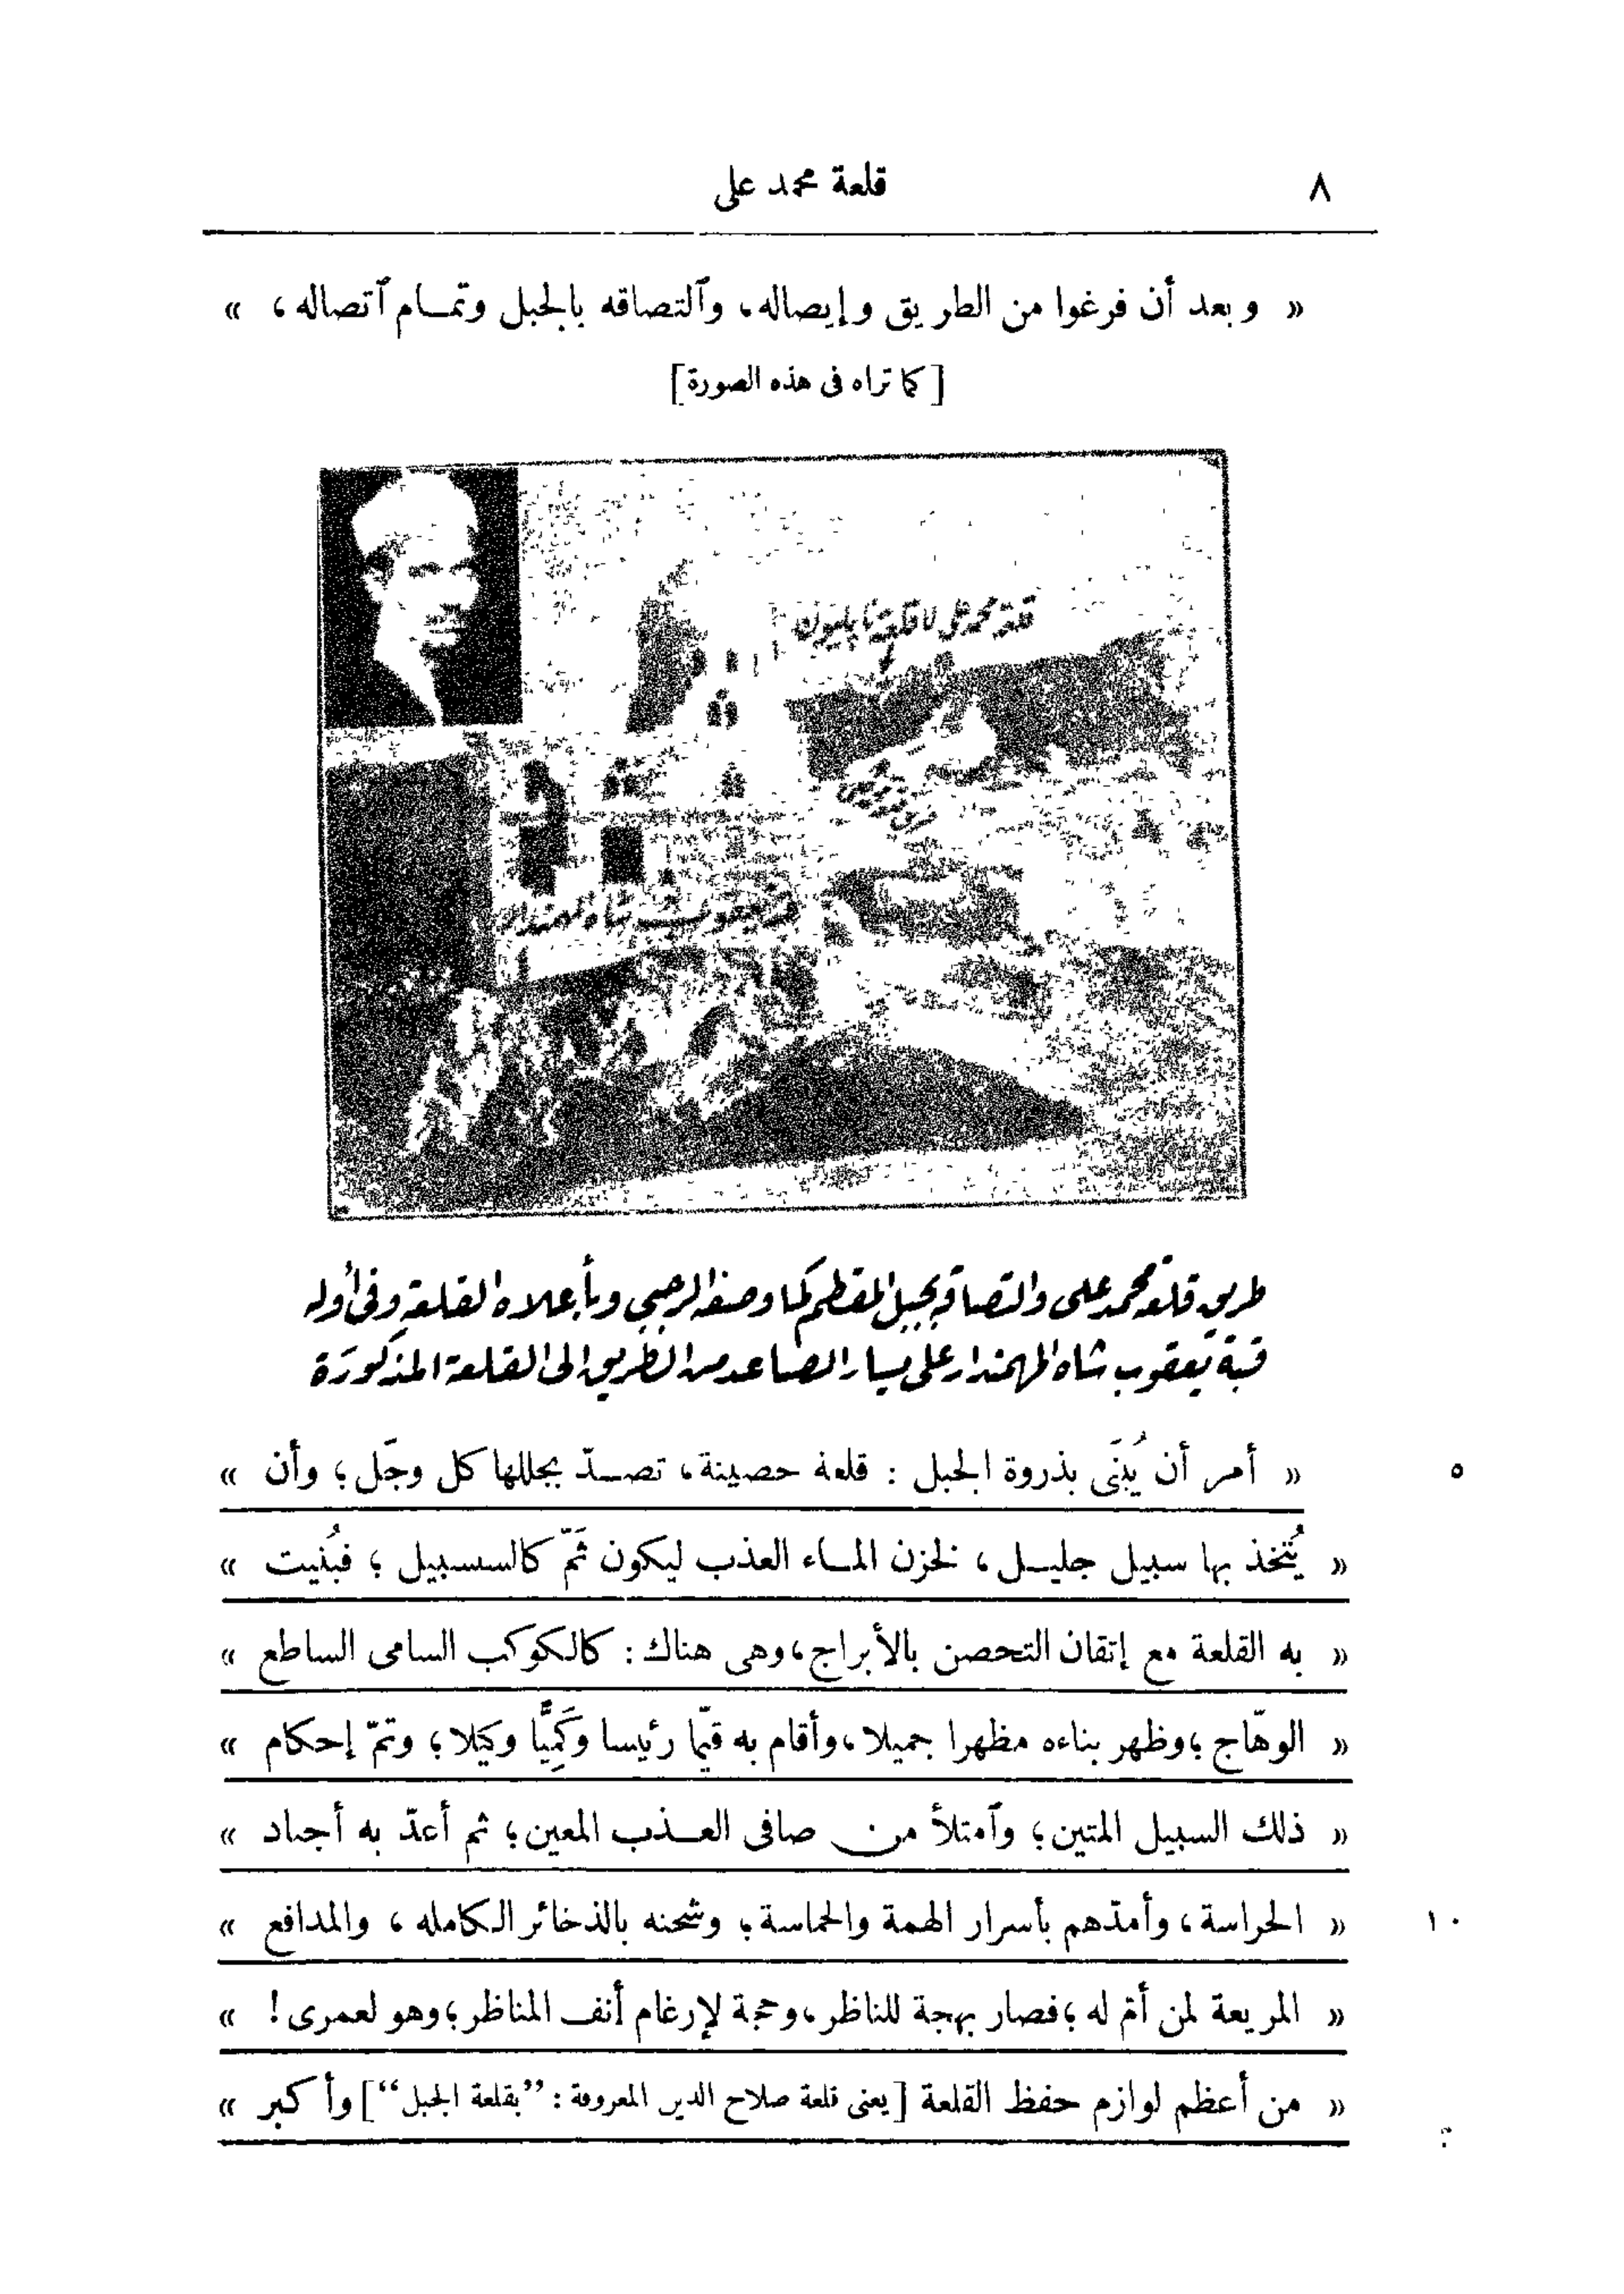 ٨
قلعة محمد على
« وبعد أن فرغوا من الطريق وإيصاله، وٱلتصاقه بالجبل وتمـام ٱتصاله، »
[كما تراه فى هذه الصورة]
قلعة محمد على لا قلعة نابليون
قبة يعقوب شاه المهمندار
طريق قلعة محمد على والتصاقه بجبل المقطم كما وصفه الرجبى وبأعلاه القلعة وفى أوله
قبة يعقوب شاه المهمندار على يسار الصاعد من الطريق الى القلعة المذكورة
« أمر أن يُبنَى بذروة الجبل : قلعة حصينة، تصـدّ بجللها كل وجَل؛ وأن » ٥
« يُتّخذ بها سبيل جليـل، لخزن المـاء العذب ليكون ثَمّ كالسبيل؛ فبُنيت »
« به القلعة مع إتقان التحصن بالأبراج، وهى هناك: كالكوكب السامى الساطع »
« الوهّاج؛ وظهر بناءه مظهرا جميلا، وأقام به قيّما رئيسا وكَمِيًّا وكيلا؛ وتمّ إحكام »
« ذلك السبيل المتين؛ وٱمتلأ من صافى العـذب المعين؛ ثم أعدّ به أجناد »
« الحراسة، وأمدّهم بأسرار الهمة والحماسة؛ وشحنه بالذخائر الكامله، والمدافع » ١٠
« المريعة لمن أمّ له؛ فصار بهجة للناظر، وحجة لإرغام أنف المناظر؛ وهو لعمرى! »
« من أعظم لوازم حفظ القلعة [يعنى قلعة صلاح الدين المعروفة: ”بقلعة الجبل“] وأكبر »